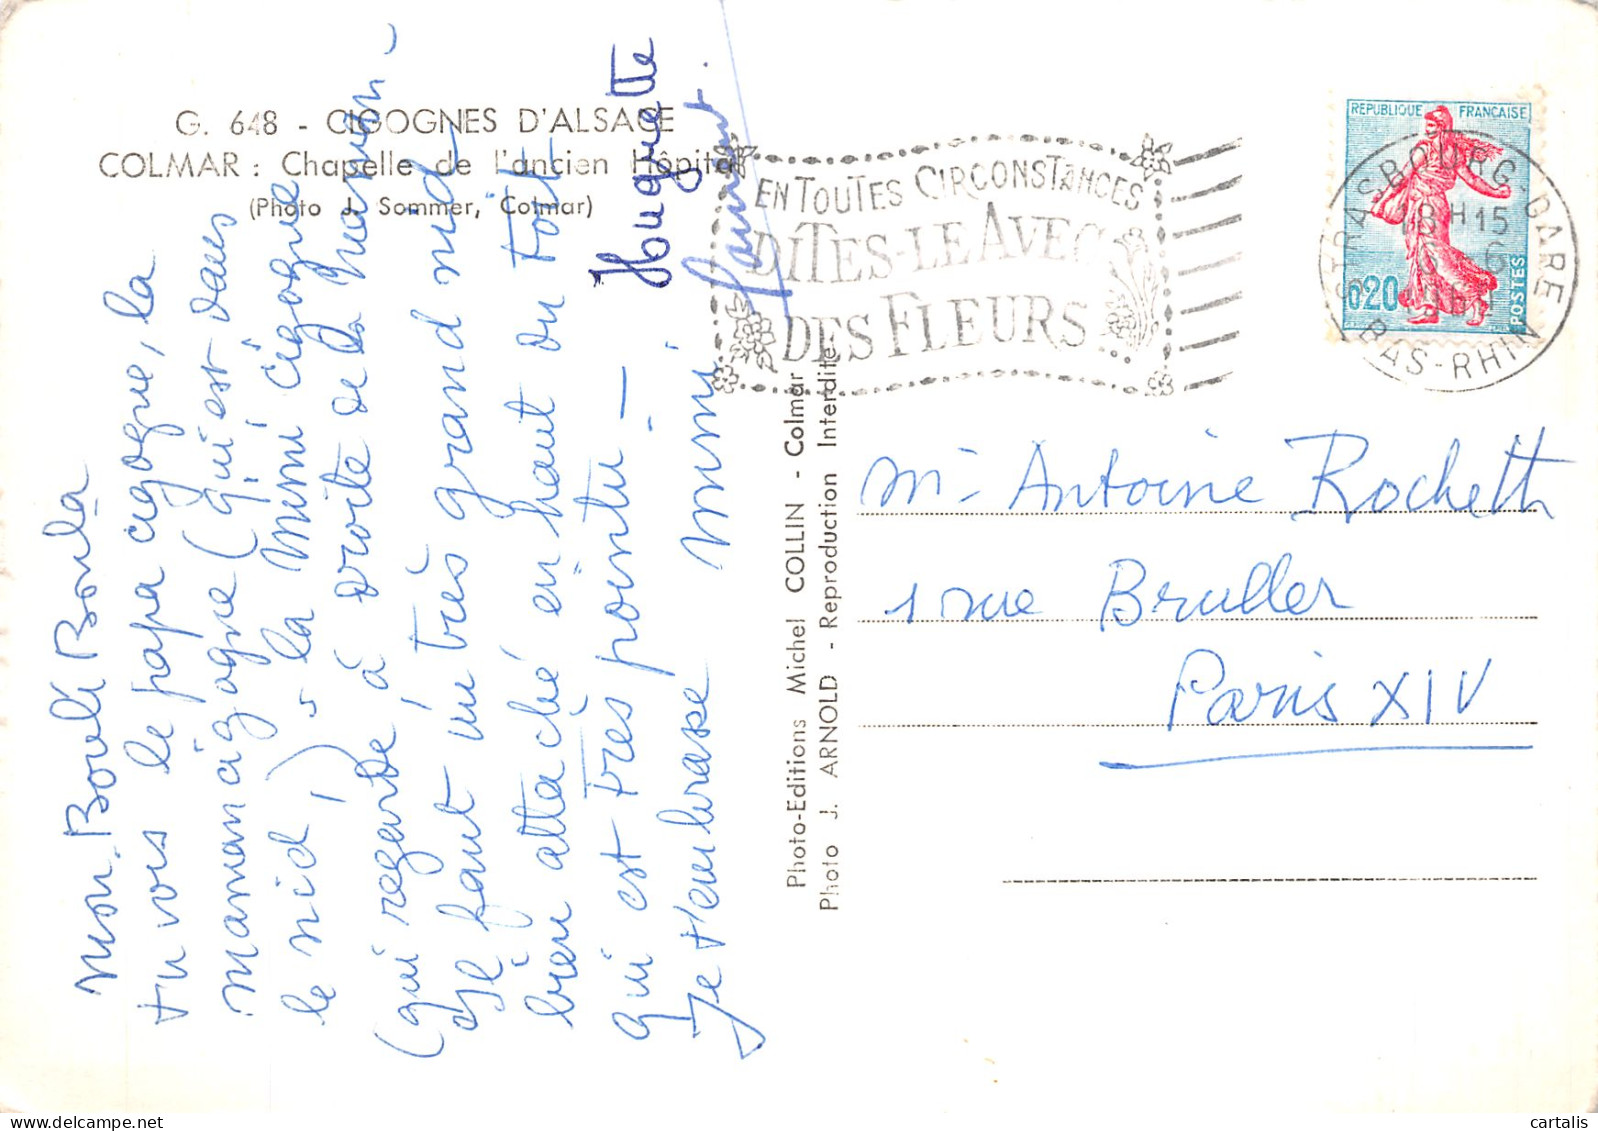 G. 648 - CIGOGNES D'ALSACE
COLMAR : Chapelle de l'ancien Hôpital
(Photo J. Sommer, Colmar)
Mon Bouli Boula
tu vois le papa cigogne, la
maman cigogne (qui est dans
le nid,) la Mimi cigogne
(qui regarde à droite de la maman -
Il faut un très grand nid
bien attaché en haut du toit
qui est très pointu -
Je t'embrasse mimi
Huguette
EN TOUTES CIRCONSTANCES
DITES-LE AVEC
DES FLEURS
REPUBLIQUE FRANÇAISE
0,20
POSTES
STRASBOURG-GARE
18H15
6 - 6
BAS-RHIN
Photo-Editions Michel COLLIN - Colmar
Photo J. ARNOLD - Reproduction Interdite
Mr Antoine Rochett
1 rue Bruller
Paris XIV
cartalis